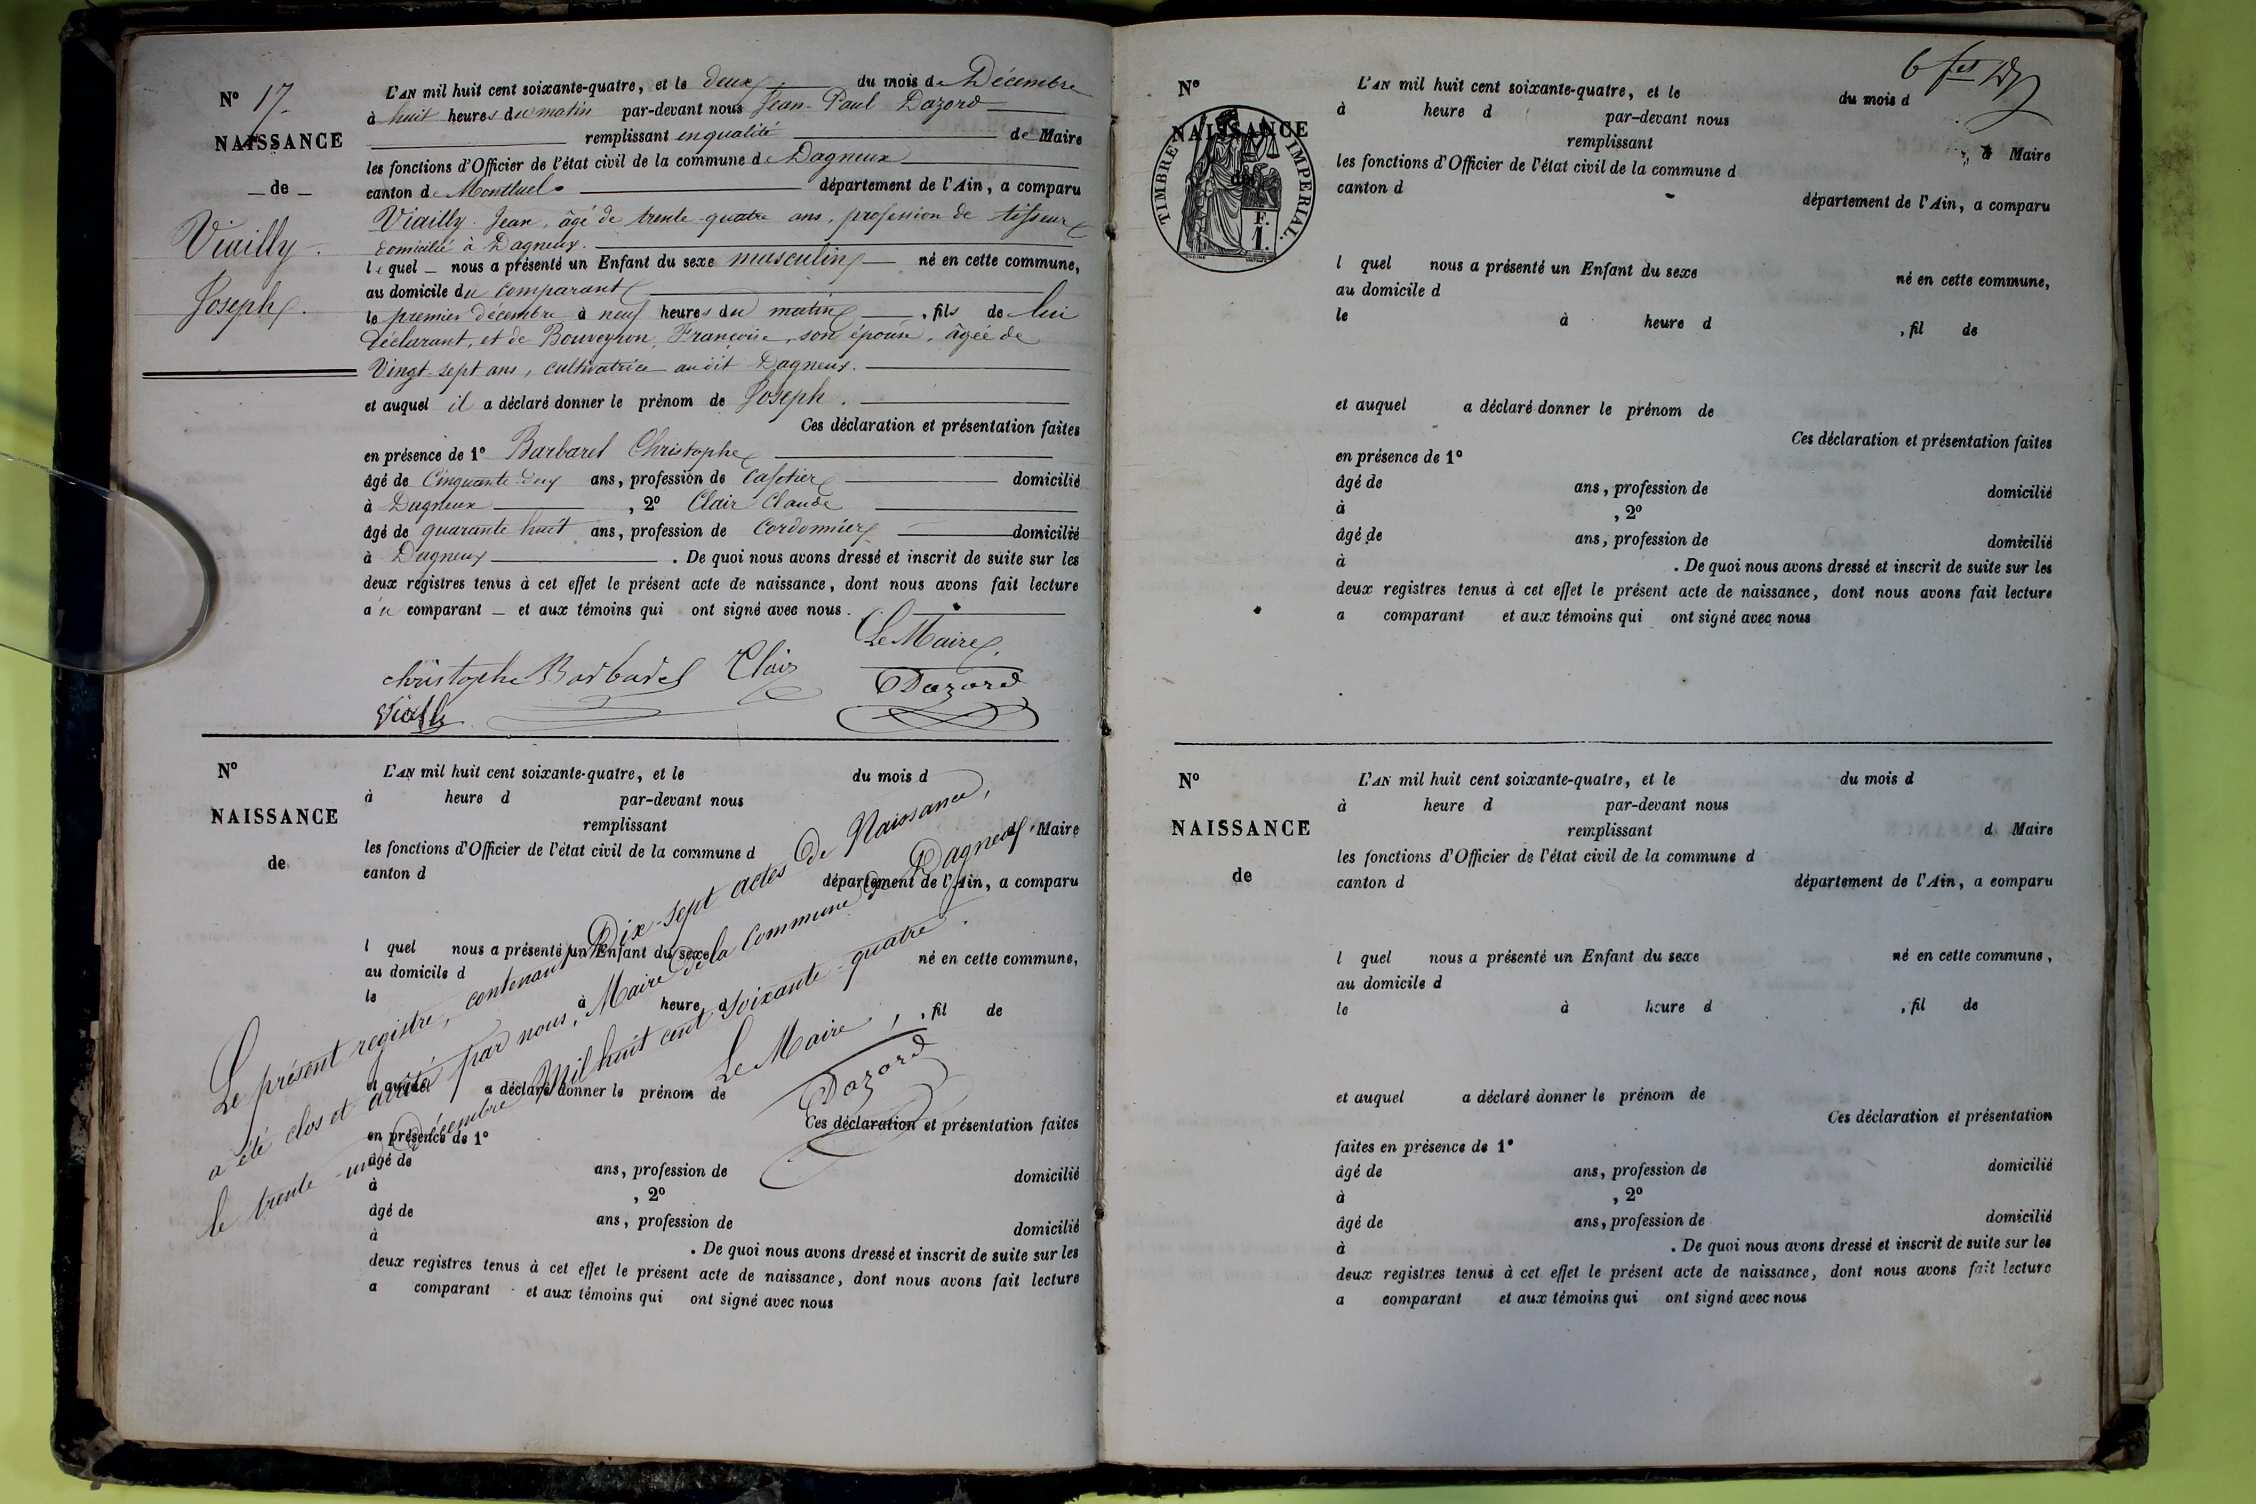 N° 17
NAISSANCE
de
Viailly
Joseph
L'AN mil huit cent soixante-quatre, et le deux du mois de Décembre
à huit heures du matin par-devant nous Jean-Paul Dazord
remplissant en qualité de Maire
les fonctions d'Officier de l'état civil de la commune de Dagneux
canton de Montluel département de l'Ain, a comparu
Viailly Jean, âgé de trente-quatre ans, profession de tisseur
domicilié à Dagneux.
lequel nous a présenté un Enfant du sexe masculin né en cette commune,
au domicile du comparant
le premier décembre à neuf heures du matin, fils de lui
déclarant, et de Bouveyron Françoise, son épouse, âgée de
Vingt-sept ans, cultivatrice audit Dagneux.
et auquel il a déclaré donner le prénom de Joseph.
Ces déclaration et présentation faites
en présence de 1° Barbaret Christophe
âgé de Cinquante-deux ans, profession de cafetier domicilié
à Dagneux, 2° Clair Claude
âgé de quarante huit ans, profession de Cordonnier domicilié
à Dagneux. De quoi nous avons dressé et inscrit de suite sur les
deux registres tenus à cet effet le présent acte de naissance, dont nous avons fait lecture
au comparant et aux témoins qui ont signé avec nous.
Le Maire
christophe Barbaret Clair Dazord
Vially
N°
NAISSANCE
de
L'AN mil huit cent soixante-quatre, et le du mois d
à heure d par-devant nous
remplissant d Maire
les fonctions d'Officier de l'état civil de la commune d
canton d département de l'Ain, a comparu
l quel nous a présenté un Enfant du sexe né en cette commune,
au domicile d
le à heure d , fil de
et auquel a déclaré donner le prénom de
Ces déclaration et présentation faites
en présence de 1°
âgé de ans, profession de domicilié
à , 2°
âgé de ans, profession de domicilié
à . De quoi nous avons dressé et inscrit de suite sur les
deux registres tenus à cet effet le présent acte de naissance, dont nous avons fait lecture
a comparant et aux témoins qui ont signé avec nous
Le présent registre, contenant Dix-sept actes de Naissance,
a été clos et arrêté par nous, Maire de la commune de Dagneux
le trente-un Décembre Mil huit cent soixante-quatre.
Le Maire,
Dazord
6
N°
NAISSANCE
de
TIMBRE IMPERIAL.
F.
1.
L'AN mil huit cent soixante-quatre, et le du mois d
à heure d par-devant nous
remplissant d Maire
les fonctions d'Officier de l'état civil de la commune d
canton d département de l'Ain, a comparu
l quel nous a présenté un Enfant du sexe né en cette commune,
au domicile d
le à heure d , fil de
et auquel a déclaré donner le prénom de
Ces déclaration et présentation faites
en présence de 1°
âgé de ans, profession de domicilié
à , 2°
âgé de ans, profession de domicilié
à . De quoi nous avons dressé et inscrit de suite sur les
deux registres tenus à cet effet le présent acte de naissance, dont nous avons fait lecture
a comparant et aux témoins qui ont signé avec nous
N°
NAISSANCE
de
L'AN mil huit cent soixante-quatre, et le du mois d
à heure d par-devant nous
remplissant d Maire
les fonctions d'Officier de l'état civil de la commune d
canton d département de l'Ain, a comparu
l quel nous a présenté un Enfant du sexe né en cette commune,
au domicile d
le à heure d , fil de
et auquel a déclaré donner le prénom de
Ces déclaration et présentation
faites en présence de 1°
âgé de ans, profession de domicilié
à , 2°
âgé de ans, profession de domicilié
à . De quoi nous avons dressé et inscrit de suite sur les
deux registres tenus à cet effet le présent acte de naissance, dont nous avons fait lecture
a comparant et aux témoins qui ont signé avec nous